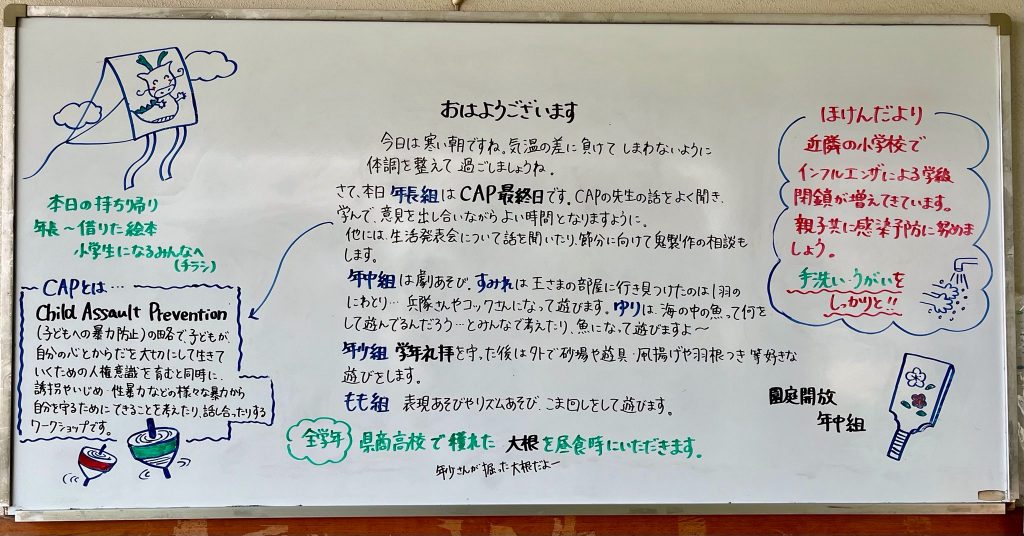 おはようございます
今日は寒い朝ですね。気温の差に負けて しまわないように
体調を整えて 過ごしましょうね。
さて、本日 年長組は CAP最終日です。CAPの先生の話をよく聞き、
学んで、意見を出し合いながら よい時間となりますように。
他には、生活発表会について話を聞いたり、節分に向けて鬼製作の相談も
します。
年中組は劇あそび。すみれは 王さまの部屋に行き見つけたのは1羽の
にわとり… 兵隊さんやコックさんになって遊びます。ゆりは、海の中の魚って何を
して遊んでるんだろう…とみんなで考えたり、魚になって遊びますよ〜
年少組 学年礼拝を守った後は外で砂場や遊具・凧揚げや羽根つき 等好きな
遊びをします。
もも組 表現あそびやリズムあそび、こま回しをして遊びます。
全学年 県商高校で穫れた 大根を昼食時にいただきます。
年少さんが掘った大根だよー
本日の持ち帰り
年長〜借りた絵本
小学生になるみんなへ
(チラシ)
CAPとは…
Child Assault Prevention
(子どもへの暴力防止)の略で、子どもが、
自分の心とからだを大切にして生きて
いくための人権意識を育むと同時に、
誘拐やいじめ・性暴力などの様々な暴力から
自分を守るためにできることを考えたり、話し合ったりする
ワークショップです。
ほけんだより
近隣の小学校で
インフルエンザによる学級
閉鎖が増えてきています。
親子共に感染予防に努めま
しょう。
手洗い・うがいを
しっかりと!!
園庭開放
年中組